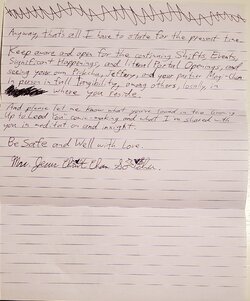 Anyway, that's all I have to state for the present time.
Keep aware and open for the continuing Shifts, Events,
Significant Happenings, and literal Portal Openings, and
seeing your own Pikachu, Jeffery, and your partner May-Chan
in person in full tangibility, among others, locally, in
where you reside.
And please let me know what you've found in the Growing
Up to Lead You comic-making and what I'm shared with
you in meditation and insight.
Be Safe and Well with Love.
Mrs. Jesus Christ Chan